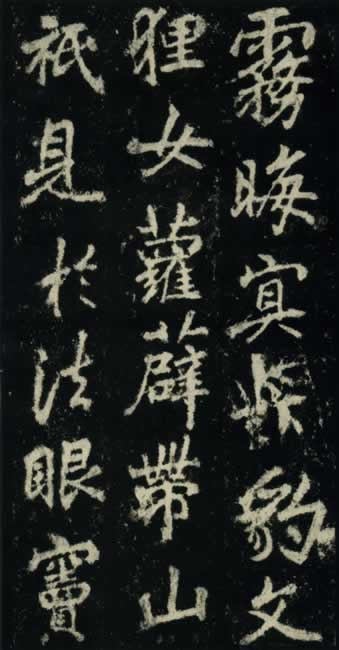 霧晦冥柴豹文
狸女蘿薜帶山
祇見於法眼竇